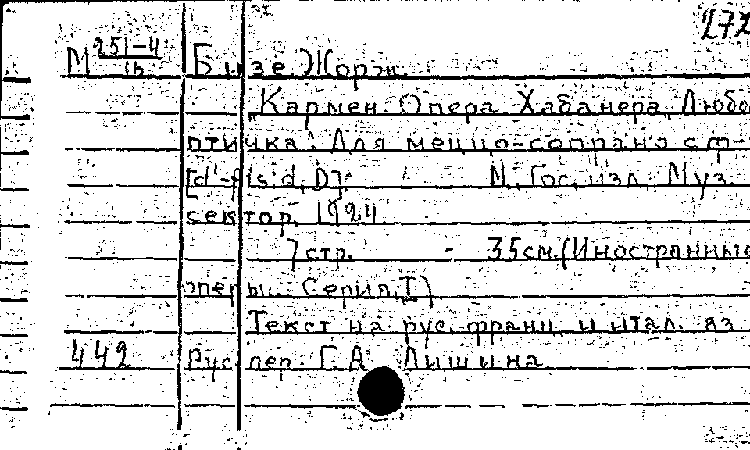 272
М 251-4 Бизе Жорж.
"Кармен. Опера. Хабанера. Любо
птичка". Для меццо-сопрано с ф-
М. Гос. изд. Муз.
сектор. 1924
7 стр. - 35 см. (Иностранные
оперы. Серия I)
Текст на рус. франц. и итал. яз.
442 Рус. пер. Г.А. Лишина